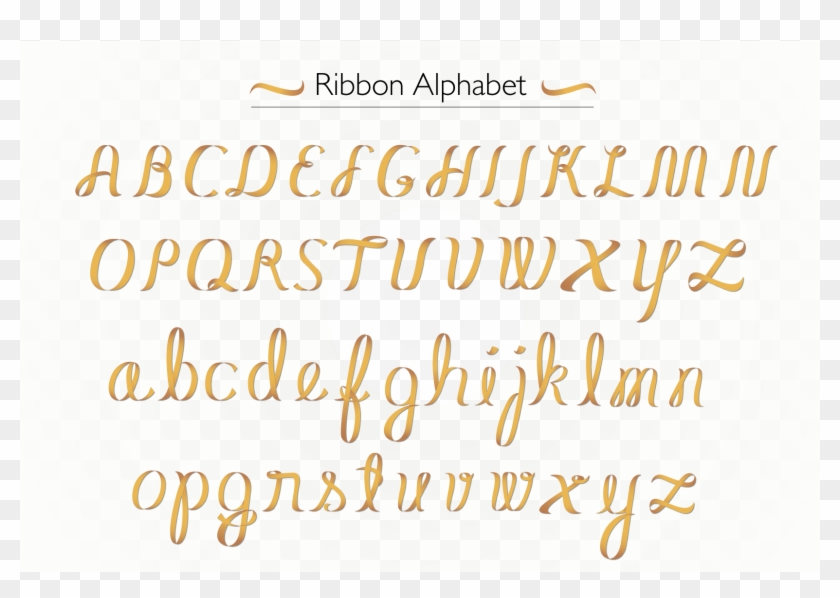 Ribbon Alphabet
ABCDEFGHIJKLMN
OPQRSTUVWXYZ
abcdefghijklmn
opqrstuvwxyz